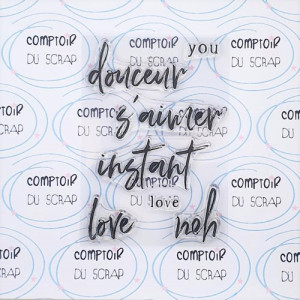 COMPTOIR
DU SCRAP
you
douceur
COMPTOIR
DU SCRAP
COMPTOIR
DU SCRAP
s'aimer
instant
COMPTOIR
DU SCRAP
COMPTOIR
DU SCRAP
love
love
COMPTOIR
DU SCRAP
COMPTOIR
DU SCRAP
COMPTOIR
DU SCRAP